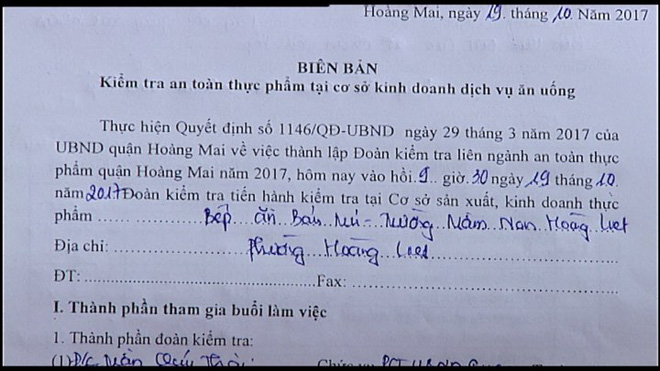 Hoàng Mai, ngày 19. tháng 10. Năm 2017
BIÊN BẢN
Kiểm tra an toàn thực phẩm tại cơ sở kinh doanh dịch vụ ăn uống
Thực hiện Quyết định số 1146/QĐ-UBND ngày 29 tháng 3 năm 2017 của
UBND quận Hoàng Mai về việc thành lập Đoàn kiểm tra liên ngành an toàn thực
phẩm quận Hoàng Mai năm 2017, hôm nay vào hồi. 9.. giờ. 30 ngày 19 tháng 10.
năm 2017 Đoàn kiểm tra tiến hành kiểm tra tại Cơ sở sản xuất, kinh doanh thực
phẩm ........ Bếp ăn Bán trú - Trường Mầm Non Hoàng Liệt
Địa chỉ: ........ Phường Hoàng Liệt ........
ĐT: ........ Fax: ........
I. Thành phần tham gia buổi làm việc
1. Thành phần đoàn kiểm tra:
(1) Đ/c Trần Quý Thái